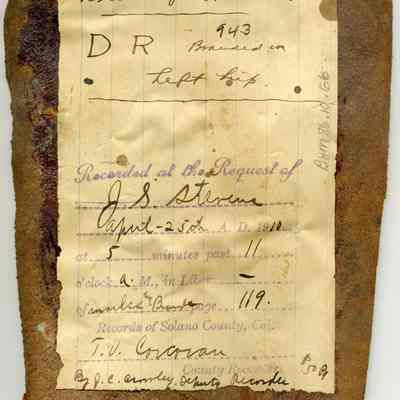 943
D R Branded on
left hip.
Recorded at the Request of
J S Stevens
April - 25th A. D. 1910
at 5 minutes past 11
o'clock A. M., in Liber —
of Marks & Brands page 119.
Records of Solano County, Cal.
T. V. Corcoran
County Recorder
By J. C. deputy Recorder